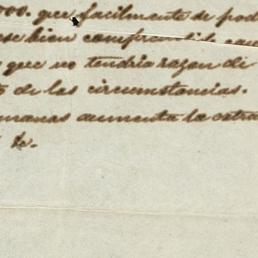 000. que facilmente se pod
ese bien comprendible que
que no tendria razon di
de las circumstancias.
manas aumenta la estra
&c.